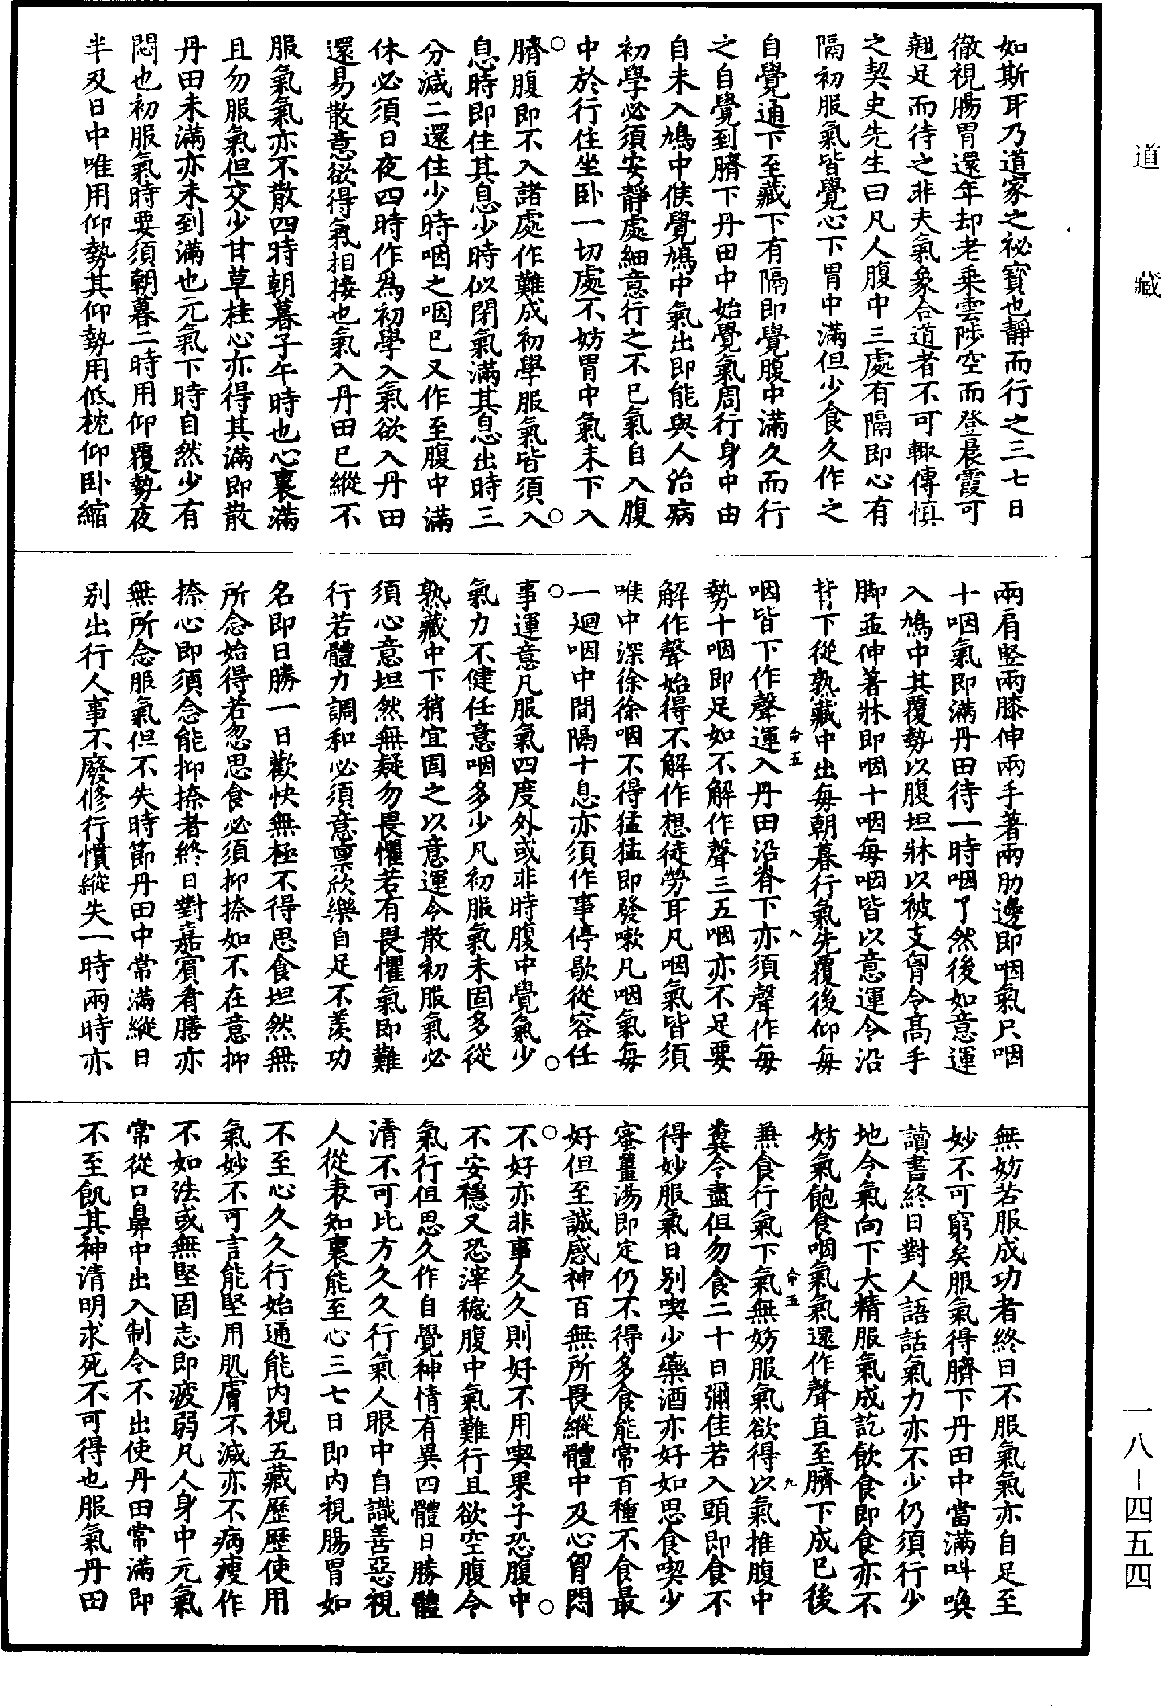 道藏
如斯耳乃道家之祕寳也靜而行之三七日
徹視腸胃還年却老乘雲陟空而登晨霞可
翹足而待之非夫氣象合道者不可輒傳慎
之契史先生曰凡人腹中三處有隔即心有
隔初服氣皆覺心下胃中滿但少食久作之
自覺通下至藏下有隔即覺腹中滿久而行
之自覺到臍下丹田中始覺氣周行身中由
自未入鳩中候覺鳩中氣出即能與人治病
初學必須安靜處細意行之不已氣自入腹
中於行住坐卧一切處不妨胃中氣未下入
臍腹即不入諸處作難成初學服氣皆須入
息時即住其息少時似閉氣滿其息出時三
分減二還住少時咽之咽已又作至腹中滿
休必須日夜四時作為初學入氣欲入丹田
還易散意欲得氣相接也氣入丹田已縱不
服氣氣亦不散四時朝暮子午時也心裏滿
且勿服氣但交少甘草桂心亦得其滿即散
丹田未滿亦未到滿也元氣下時自然少有
悶也初服氣時要須朝暮二時用仰覆勢夜
半及日中唯用仰勢其仰勢用低枕仰卧縮
兩肩竪兩膝伸兩手著兩肋邊即咽氣只咽
十咽氣即滿丹田待一時咽了然後如意運
入鳩中其覆勢以腹坦牀以被支胷令高手
脚並伸著牀即咽十咽每咽皆以意運令沿
背下從熟藏中出每朝暮行氣先覆後仰每
咽皆下作聲運入丹田沿脊下亦須聲作每
勢十咽即足如不解作聲三五咽亦不足要
解作聲始得不解作想徒勞耳凡咽氣皆須
喉中深徐徐咽不得猛猛即發嗽凡咽氣每
一迴咽中間隔十息亦須作事停歇從容任
事運意凡服氣四度外或非時腹中覺氣少
氣力不健任意咽多少凡初服氣未固多從
熟藏中下稍宜固之以意運令散初服氣必
須心意坦然無疑勿畏懼若有畏懼氣即難
行若體力調和必須意稟欣樂自足不羨功
名即日勝一日歡快無極不得思食坦然無
所念始得若忽思食必須抑捺如不在意抑
捺心即須念能抑捺者終日對嘉賓看膳亦
無所念服氣但不失時節丹田中常滿縱日
別出行人事不廢修行慣縱失一時兩時亦
無妨若服成功者終日不服氣氣亦自足至
妙不可窮矣服氣得臍下丹田中當滿叫喚
讀書終日對人語話氣力亦不少仍須行少
地令氣向下大精服氣成訖飲食即食亦不
妨氣飽食咽氣氣還作聲直至臍下成已後
兼食行氣下氣無妨服氣欲得以氣推腹中
糞令盡但勿食二十日彌佳若入頭即食不
得妙服氣日別喫少藥酒亦好如思食喫少
蜜薑湯即定仍不得多食能常百種不食最
好但至誠感神百無所畏縱體中及心胷悶
不好亦非事久久則好不用喫果子恐腹中
不安穩又恐滓穢腹中氣難行且欲空腹令
氣行但思久作自覺神情有異四體日勝體
清不可比方久久行氣人眼中自識善惡視
人從表知裏能至心三七日即內視腸胃如
不至心久久行始通能內視五藏歷歷使用
氣妙不可言能堅用肌膚不減亦不病瘦作
不如法或無堅固志即疲弱凡人身中元氣
常從口鼻中出入制令不出使丹田常滿即
不至飢其神清明求死不可得也服氣丹田
命五
八
命五
九
一八－四五四